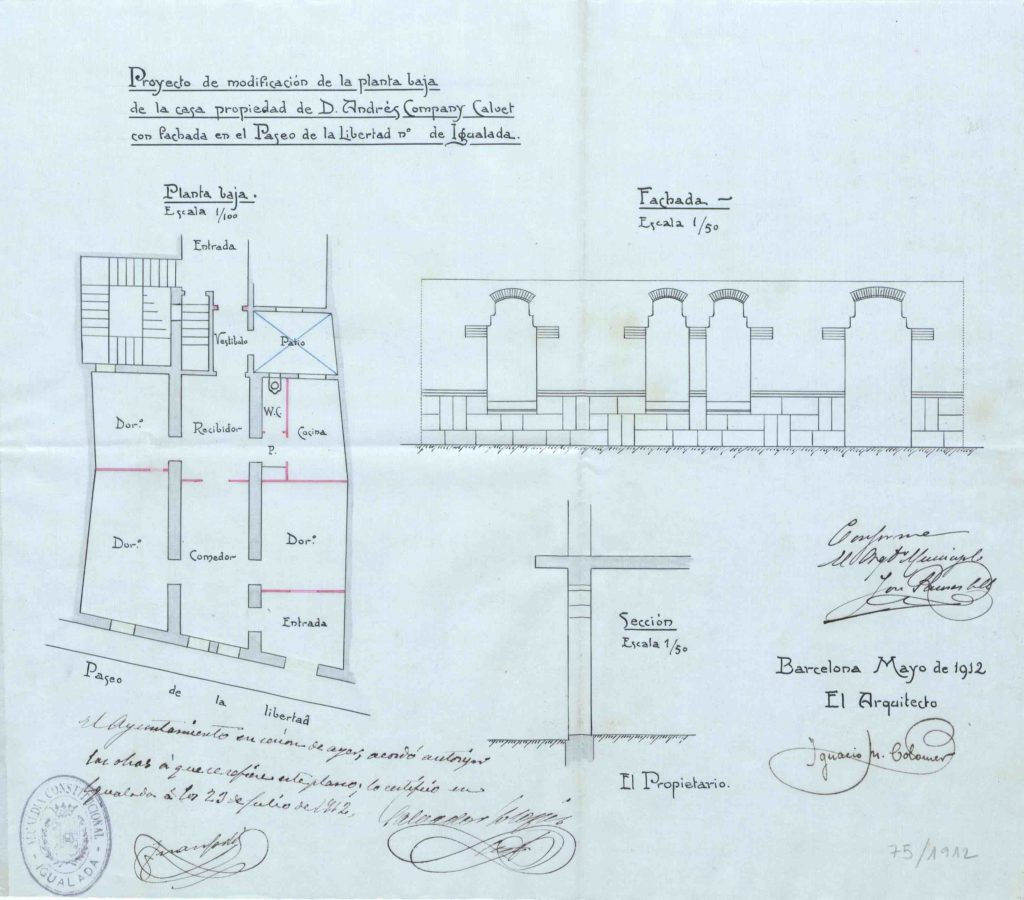 Proyecto de modificación de la planta baja
de la casa propiedad de D. Andrés Company Calvet
con fachada en el Paseo de la Libertad nº de Igualada.
Planta baja.
Escala 1/100
Fachada
Escala 1/50
Entrada
Vestíbulo
Patio
W.C.
Dor.º
Recibidor
Cocina
P.
Dor.º
Comedor
Dor.º
Entrada
Paseo de la libertad
Sección
Escala 1/50
Conforme
el Arqto Municipal
José
Barcelona Mayo de 1912
El Arquitecto
Ignacio Mª Colomer
El Propietario.
El Ayuntamiento en sesión de ayer, acordó autorizar
las obras á que se refiere este plano, lo certifico en
Igualada á los 23 de Julio de 1912,
Salvador
ALCALDIA CONSTITUCIONAL
- IGUALADA -
75/1912